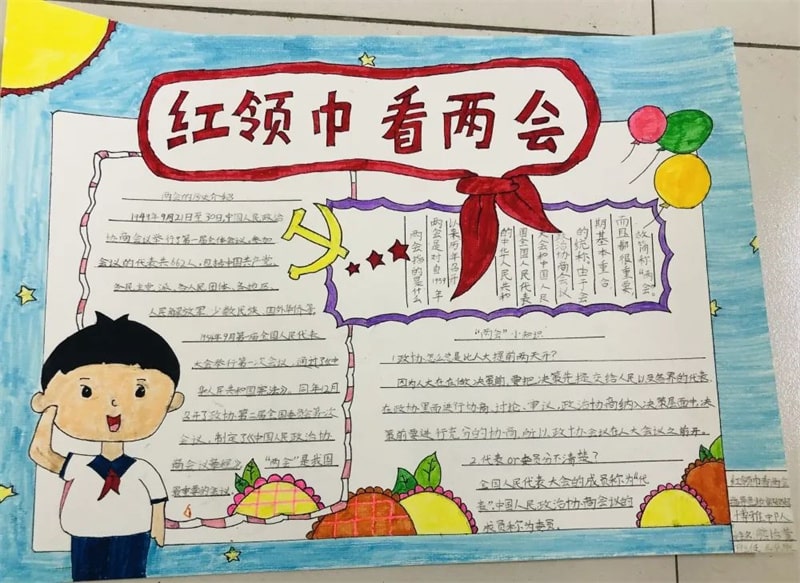 红领巾看两会
两会的历史介绍
1949年9月21日至30日,中国人民政治
协商会议举行了第一届全体会议,参加
会议的代表共662人,包括中国共产党、
各民主党派、各人民团体、各地区、
人民解放军、少数民族、国外华侨等
1954年9月第一届全国人民代表
大会举行第一次会议,通过了《中
华人民共和国宪法》。同年12月
召开了政协第二届全国委员会第一次
会议,制定了《中国人民政治协
商会议章程》 "两会"是我国
最重要的会议
两会指的是什么
两会是对自1959年
以来历年召开
的中华人民共和
国全国人民代表
大会和中国人民
政治协商会议
的统称,由于会
期基本重合
而且都很重要,
故简称"两会"
"两会"小知识
1.政协怎么总是比人大提前两天开?
因为人大在做决策前,要把决策先提交给人民以及各界的代表,
在政协里面进行协商、讨论、审议,政治协商纳入决策层面中,决
策前要进行充分的协商,所以政协会议在人大会议之前开。
2.代表or委员分不清楚?
全国人民代表大会的成员称为"代
表",中国人民政治协商会议的
成员称为委员。
红领巾看两会